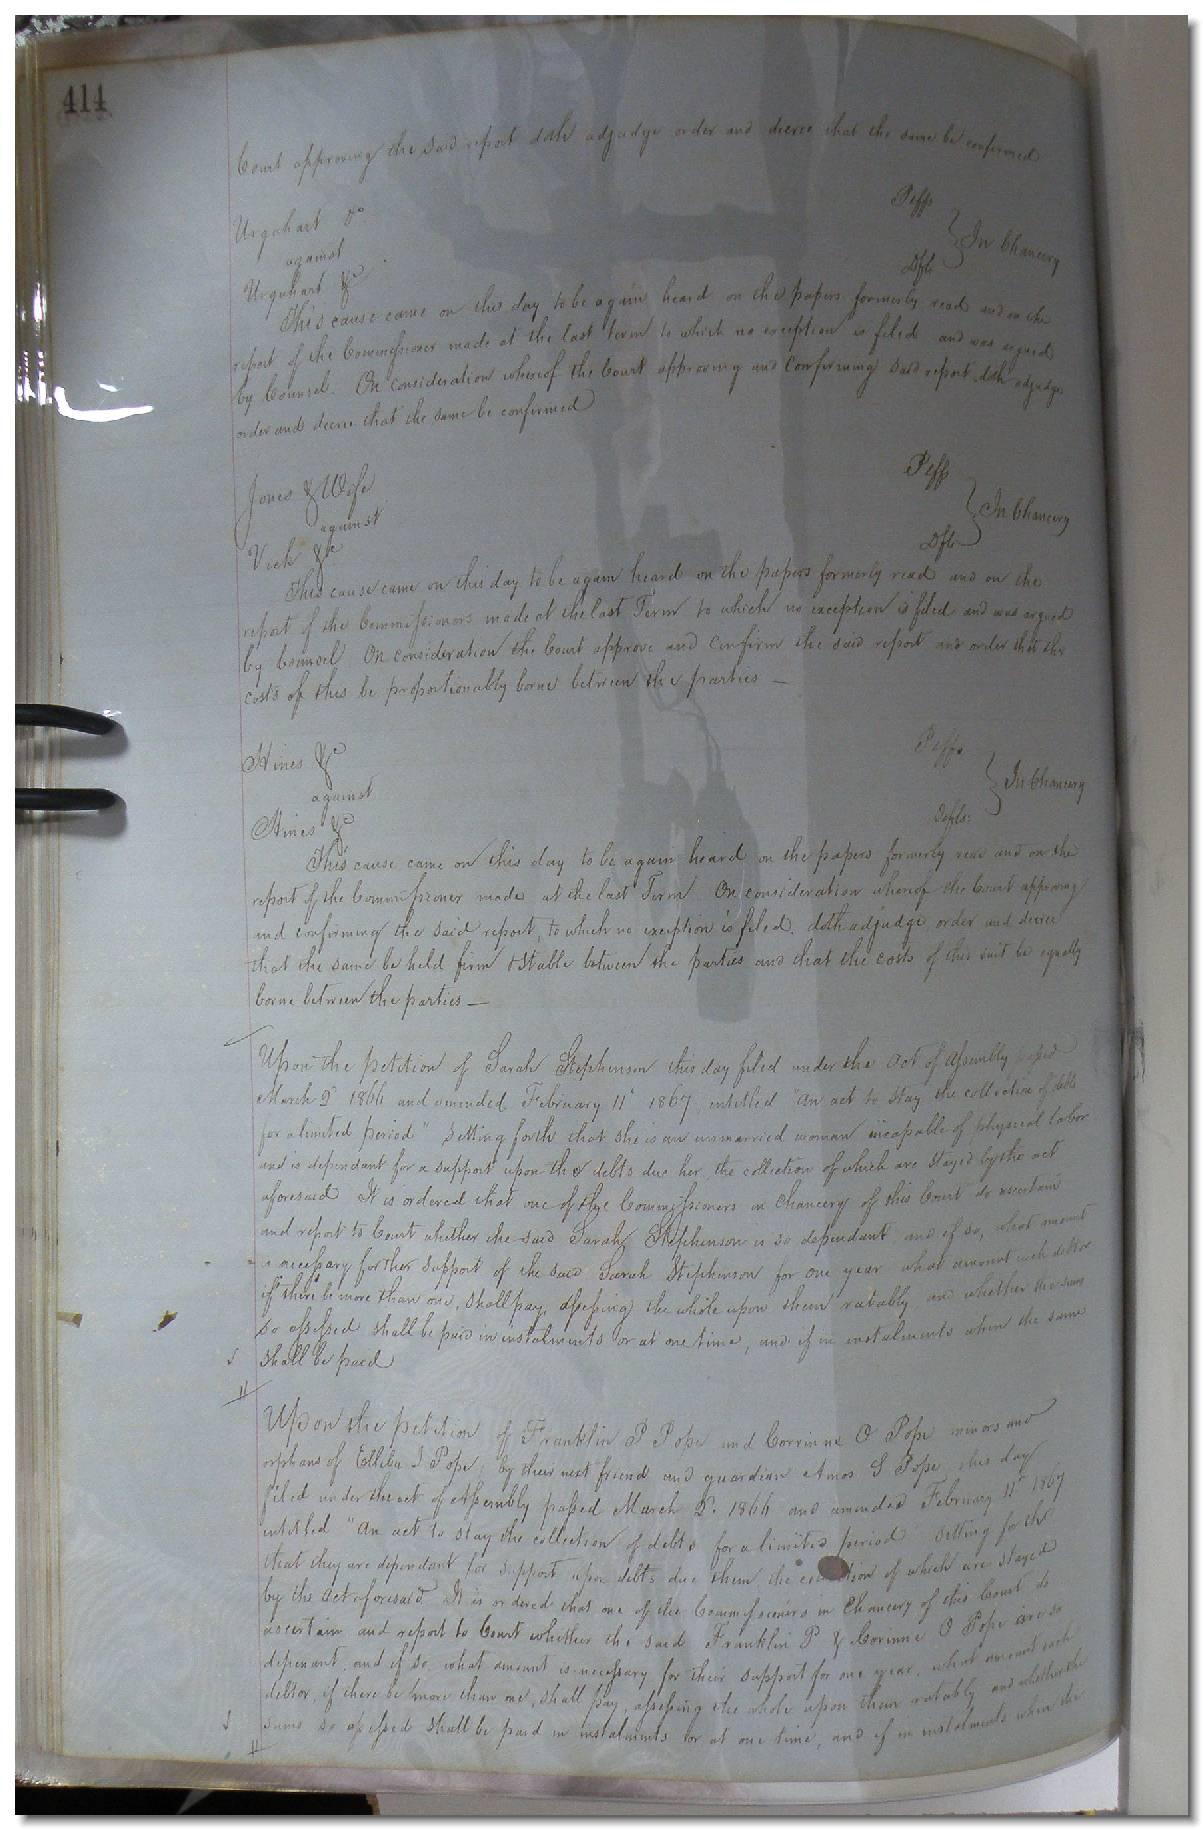 414
Court approving the said report doth adjudge order and decree that the same be confirmed
Urquhart &c Peffs
against } In Chancery
Urquhart &c Dfts
This cause came on this day to be again heard on the papers formerly read and on the
report of the Commissioner made at the last term to which no exception is filed and was argued
by Counsel. On consideration whereof the Court approving and confirming said report doth adjudge
order and decree that the same be confirmed
Jones & Wife Peffs
against } In Chancery
Vick &c Dfts
This cause came on this day to be again heard on the papers formerly read and on the
report of the Commissioners made at the last Term to which no exception is filed and was argued
by Counsel On consideration the Court approve and confirm the said report and order that the
costs of this be proportionably borne between the parties —
Hines &c Peffs
against } In Chancery
Hines &c Defts:
This cause came on this day to be again heard on the papers formerly read and on the
report of the Commissioner made at the last Term On consideration whereof the Court approving
and confirming the said report, to which no exception is filed. doth adjudge order and decree
that the same be held firm & stable between the parties and that the costs of this suit be equally
borne between the parties —
Upon the petition of Sarah Stephenson this day filed under the Act of Assembly passed
March 2d 1866 and amended February 11th 1867 entitled "An act to stay the collection of debts
for a limited period" Setting forth that she is an unmarried woman incapable of physical labor
and is dependant for a support upon the debts due her, the collection of which are stayed by the act
aforesaid It is ordered that one of the Commissioners in Chancery of this Court do ascertain
and report to Court whether the said Sarah Stephenson is so dependant and if so, what amount
is necessary for the support of the said Sarah Stephenson for one year what amount each debtor
if there be more than one, shall pay, assessing the whole upon them ratably and whether the sums
so assessed shall be paid in instalments or at one time, and if in instalments when the same
shall be paid
Upon the petition of Franklin P Pope and Corrinne O Pope minors and
orphans of Elliba J Pope, by their next friend and guardian Amos S Pope, this day
filed under the act of Assembly passed March 2d. 1866 and amended February 11th 1867
entitled "An act to stay the collection of debts for a limited period Setting forth
that they are dependant for support upon debts due them the collection of which are stayed
by the Act aforesaid It is ordered that one of the Commissioners in Chancery of this Court do
ascertain and report to Court whether the said Franklin P & Corinne O Pope are so
dependant, and if so what amount is necessary for their support for one year, what amount each
debtor, if there be more than one, shall pay, assessing the whole upon them ratably and whether the
sums so assessed shall be paid in instalments or at one time, and if in instalments when the